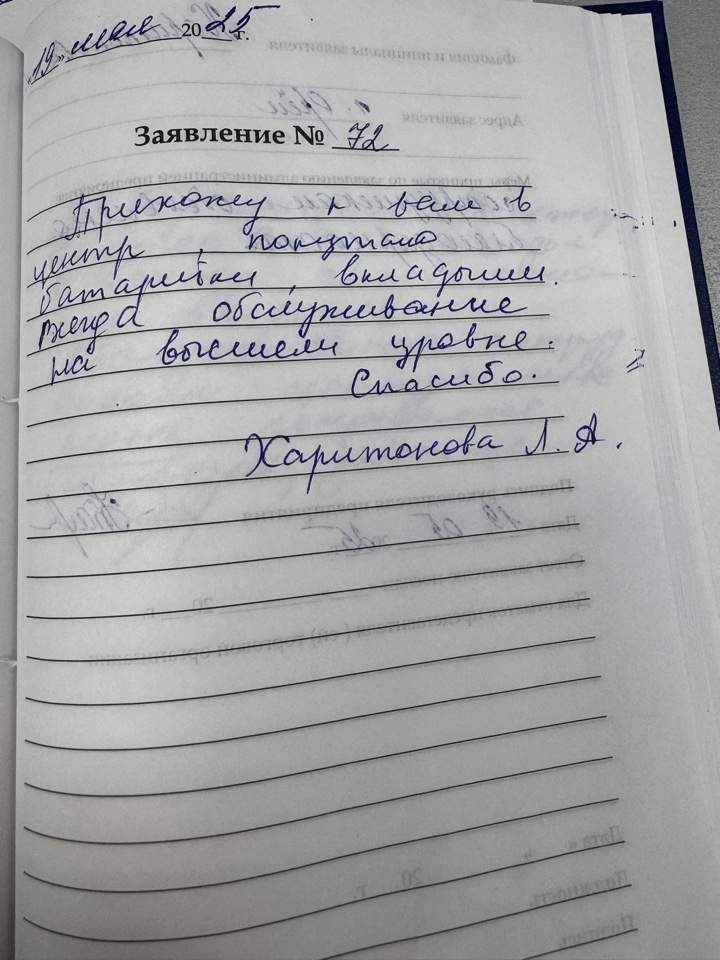 "19" мая 2025 г.
Заявление № 72
Прихожу к вам в
центр, покупаю
батарейки, вкладыши.
всегда обслуживание
на высшем уровне.
Спасибо.
Харитонова Л. А.